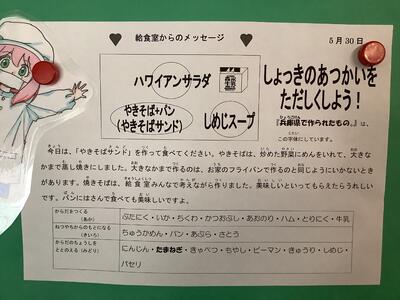 給食室からのメッセージ
5月30日
ハワイアンサラダ
やきそば+パン
(やきそばサンド)
しめじスープ
しょっきのあつかいを
ただしくしよう!
『兵庫県で作られたもの。』は、
この字体にしています。
今日は、「やきそばサンド」を作って食べてください。やきそばは、炒めた野菜にめんをいれて、大きな
かまで蒸し焼きにしました。大きなかまで作るのは、お家のフライパンで作るのと同じようにいかないとき
があります。焼きそばは、給食室みんなで考えながら作りました。美味しいといってもらえたらうれしい
です。パンにはさんで食べても美味しいですよ。
からだをつくる
(あか)
ぶたにく・いか・ちくわ・かつおぶし・あおのり・ハム・とりにく・牛乳
ねつやちからのもとになる
(きいろ)
ちゅうかめん・パン・あぶら・さとう
からだのちょうしを
ととのえる(みどり)
にんじん・たまねぎ・きゃべつ・もやし・ピーマン・きゅうり・しめじ・
パセリ